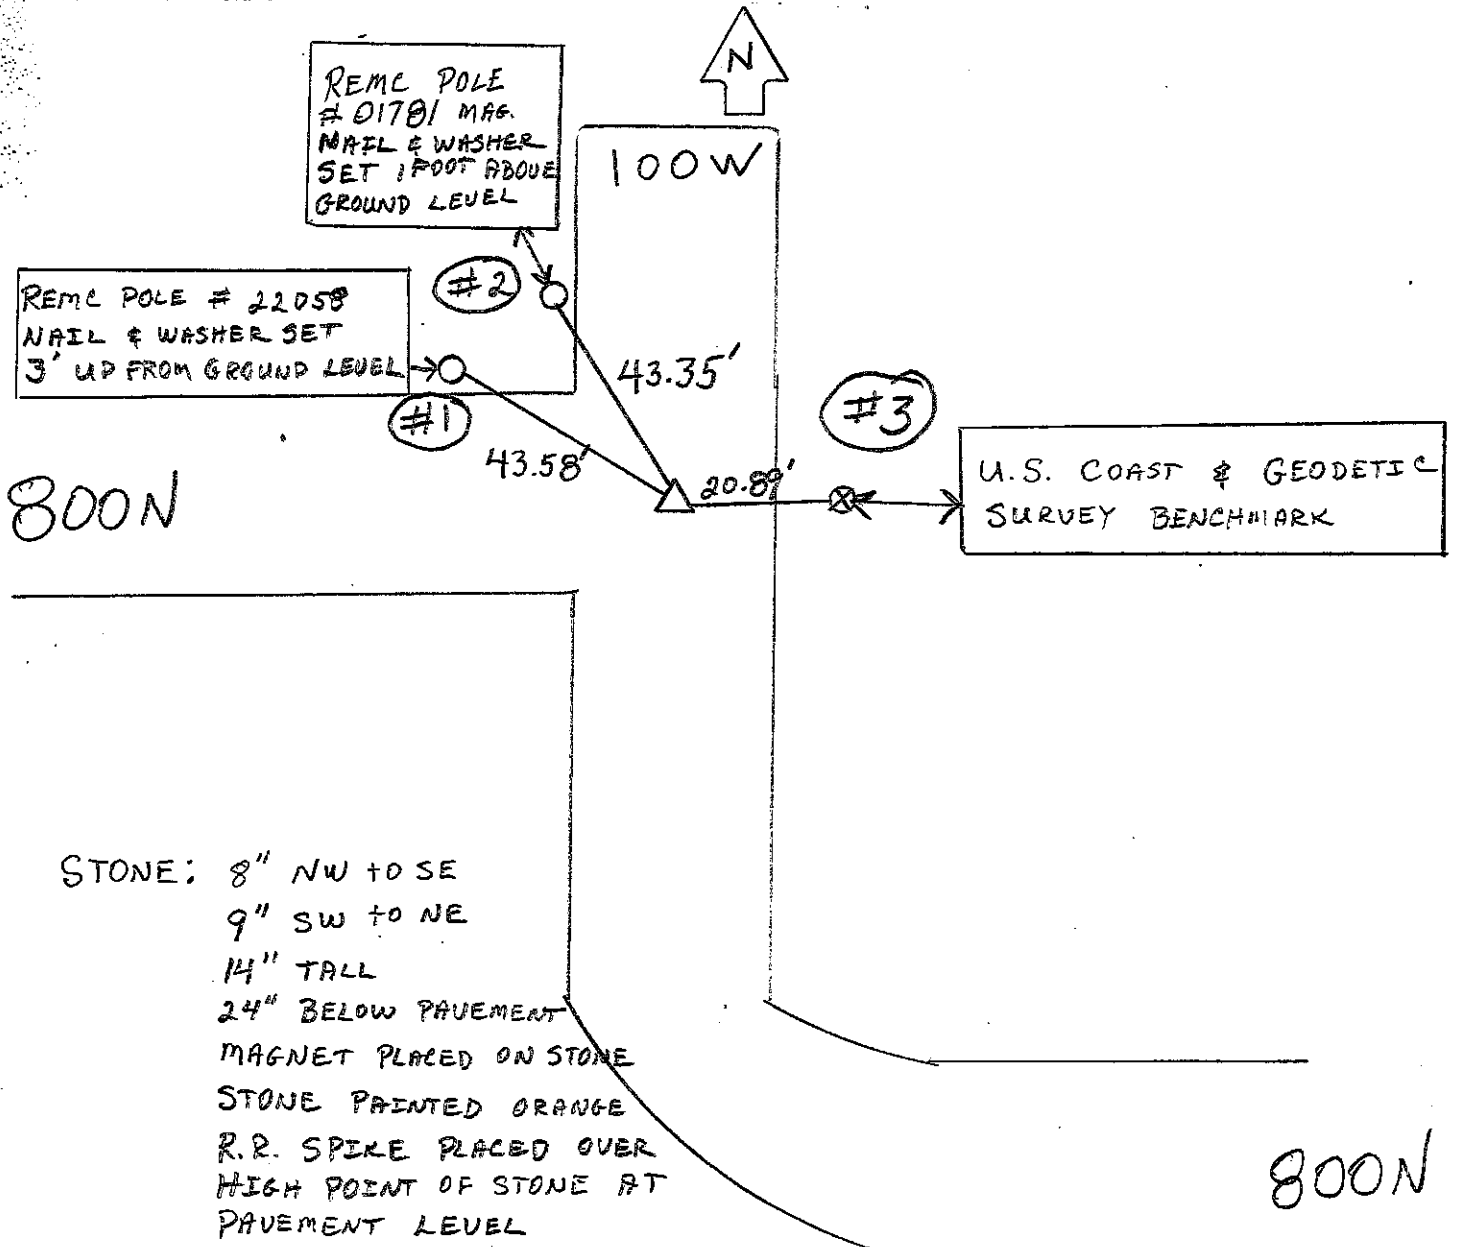 N
REMC POLE
# 01781 MAG.
NAIL & WASHER
SET 1 FOOT ABOVE
GROUND LEVEL
100W
#2
REMC POLE # 22058
NAIL & WASHER SET
3' UP FROM GROUND LEVEL
43.35'
#1
#3
43.58'
20.89'
U.S. COAST & GEODETIC
SURVEY BENCHMARK
800N
STONE: 8" NW to SE
9" SW to NE
14" TALL
24" BELOW PAVEMENT
MAGNET PLACED ON STONE
STONE PAINTED ORANGE
R.R. SPIKE PLACED OVER
HIGH POINT OF STONE AT
PAVEMENT LEVEL
800N